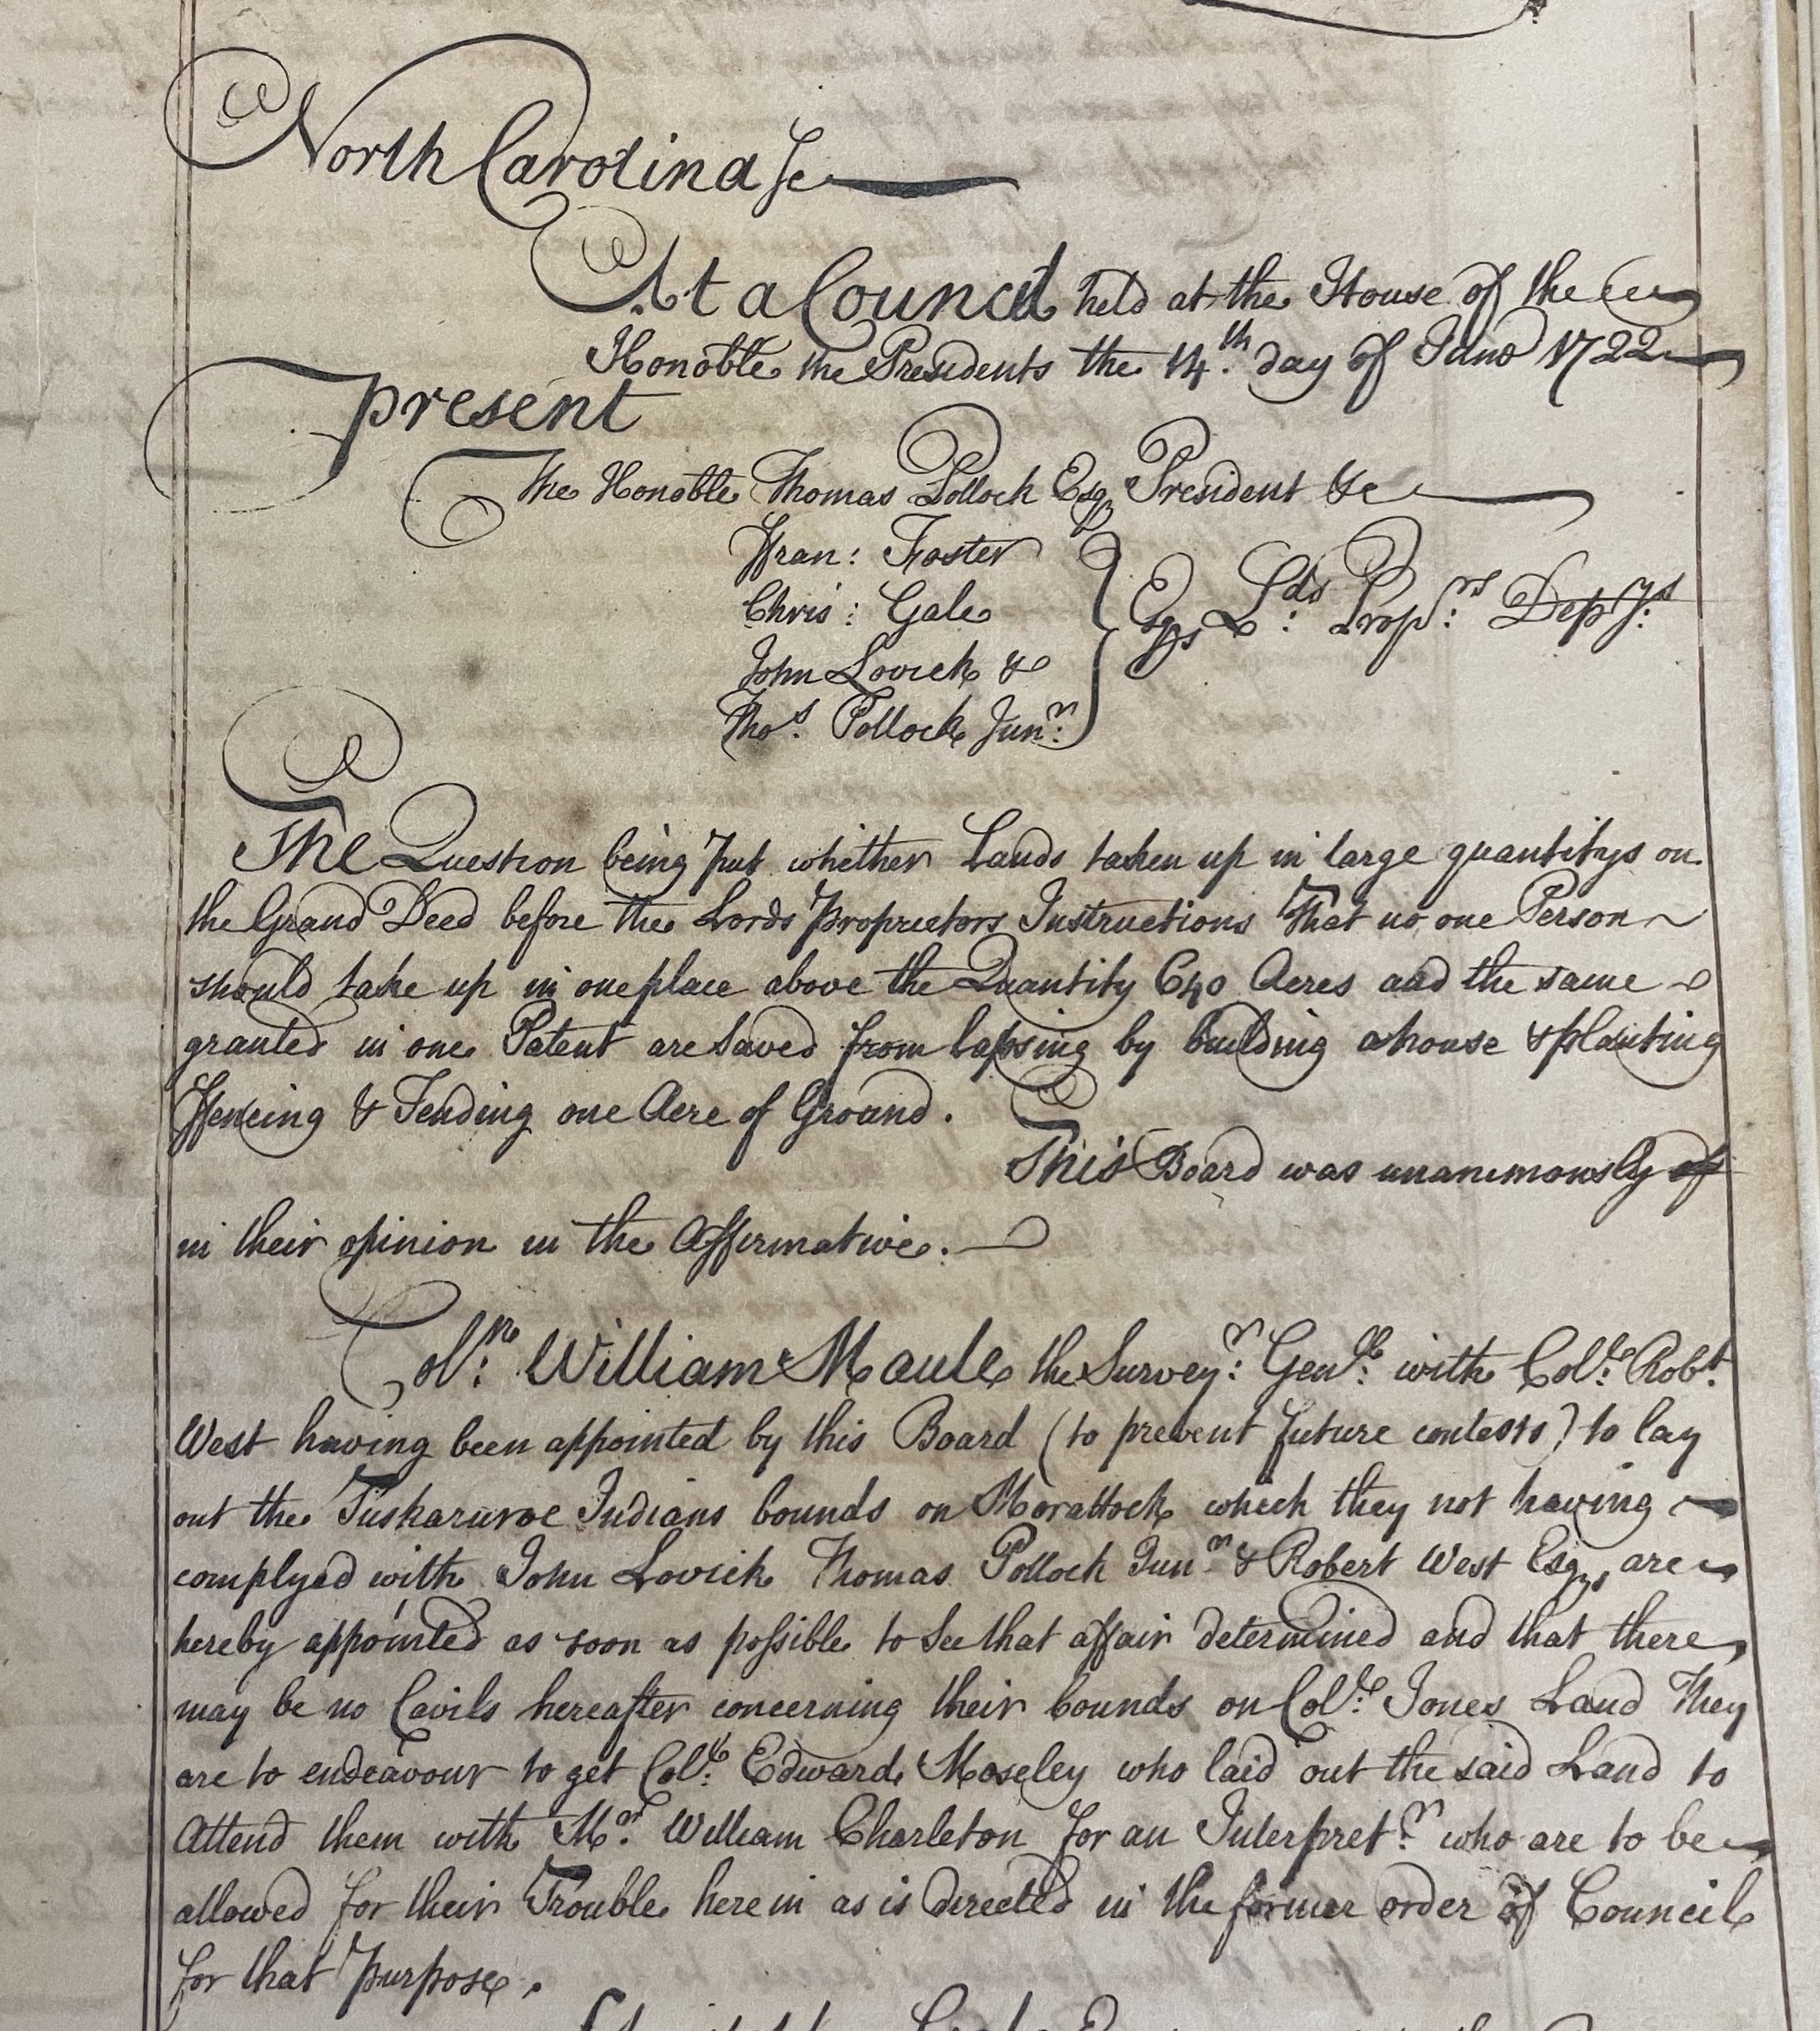 North Carolina Sc
At a Council held at the House of the
Honoble the Presidents the 14.th day of June 1722
present
The Honoble Thomas Pollock Esq President &c
ffran: Foster
Chris: Gale
John Lovick &
Thos. Pollock Junr:
} Esqrs Lds: Propr:s Deptys:
The Question being put whither Lands taken up in large quantitys on
the Grand Deed before the Lords Proprietors Instructions That no one Person
should take up in one place above the Quantity 640 Acres and the same
granted in one Patent are saved from lapsing by building a house & planting
ffencing & Tending one Acre of Ground.
This Board was unanimously of
in their opinion in the Affirmative.
Coln: William Maule the Survey:r Genll: with Coll: Robt.
West having been appointed by this Board (to prevent future contests) to lay
out the Tuskaruroe Indians bounds on Morattock which they not having
complyed with John Lovick Thomas Pollock Junr & Robert West Esqrs are
hereby appointed as soon as possible to see that affair determined and that there
may be no Cavils hereafter concerning their bounds on Coll: Jones Land They
are to endeavour to get Coll: Edward Moseley who laid out the said Land to
Attend them with Mr: William Charleton for an Interpret:r who are to be
allowed for their Trouble herein as is directed in the former order of Council
for that Purpose.